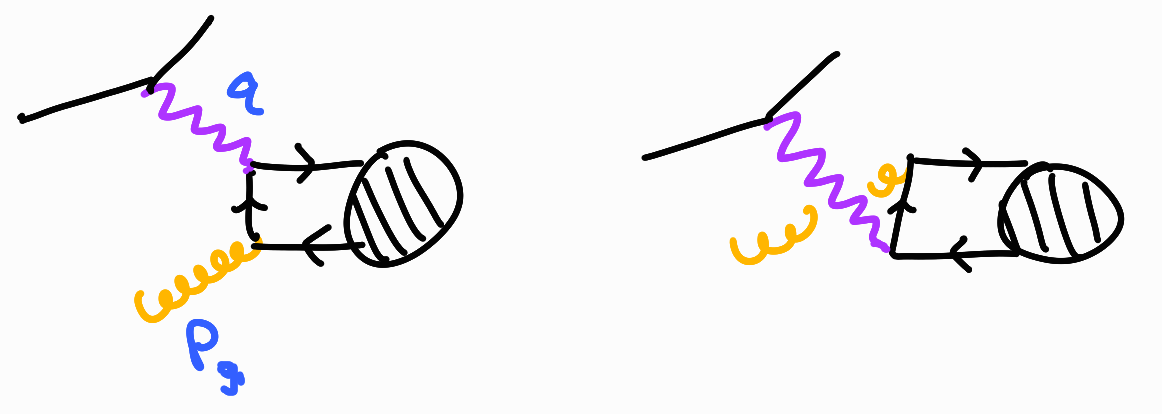 q
p_g